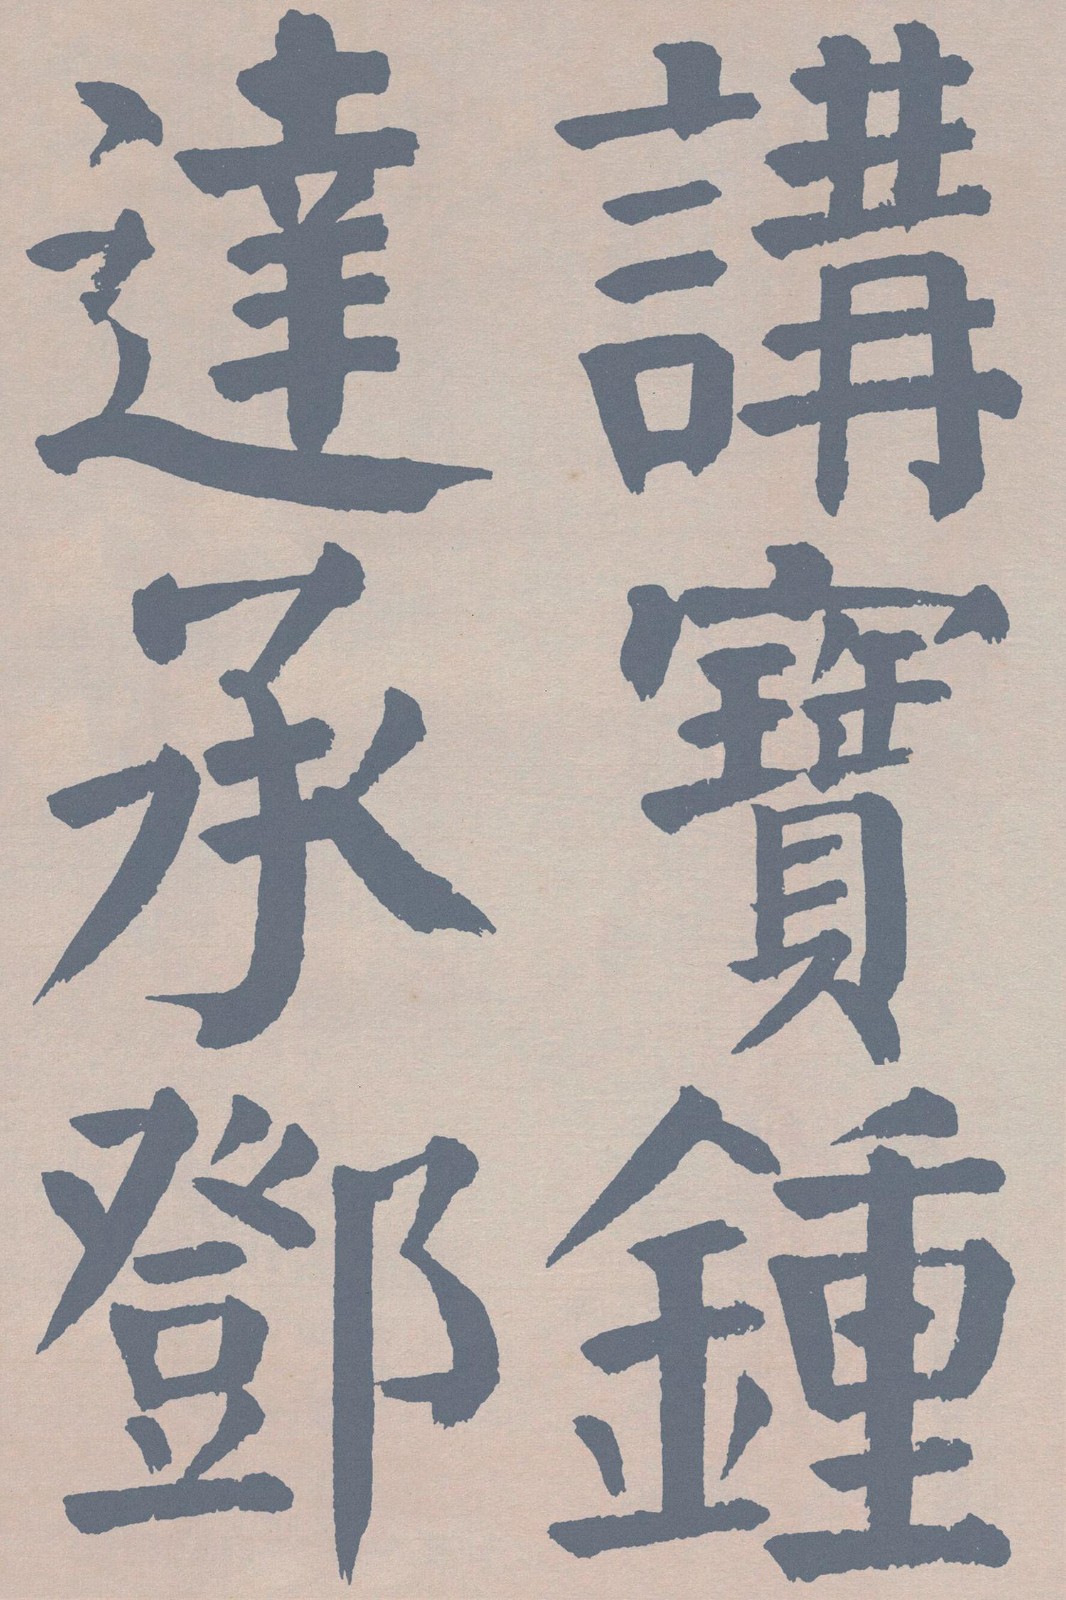 講寶鍾
達承鄧